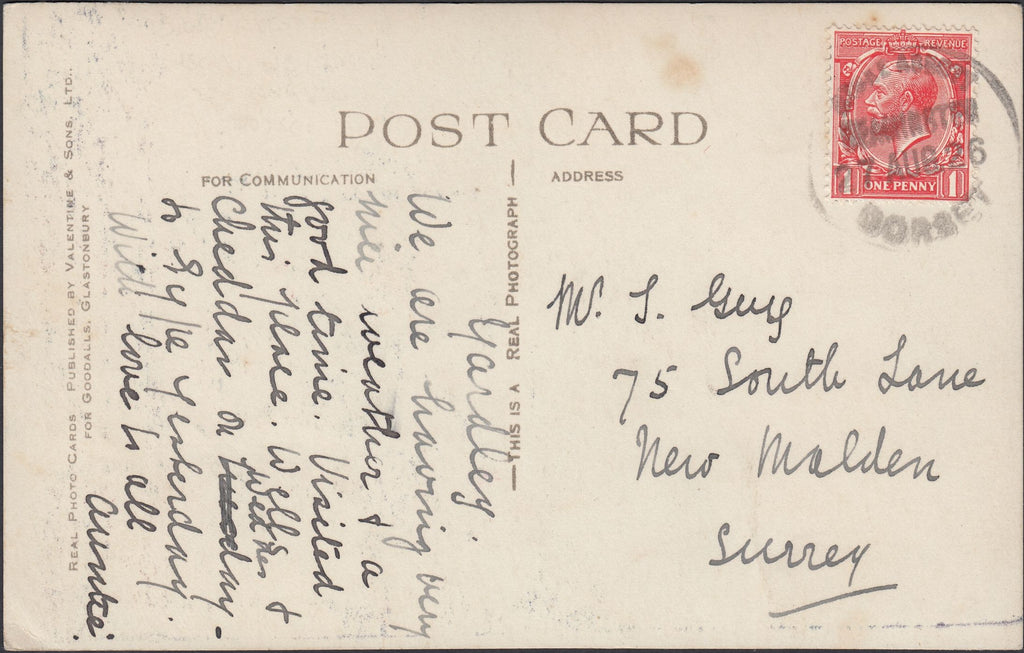 POST CARD
FOR COMMUNICATION
ADDRESS
POSTAGE REVENUE
ONE PENNY
1 1
AUG 26
DORSET
THIS IS A REAL PHOTOGRAPH
REAL PHOTO CARDS PUBLISHED BY VALENTINE & SONS, LTD.,
FOR GOODALLS, GLASTONBURY
Yardley.
We are having very
nice weather & a
good time. Visited
this place. Wells &
Cheddar on Tuesday Wednes
to Ryle yesterday.
With love to all
Auntie.
Mr. S. Guy
75 South Lane
New Malden
Surrey